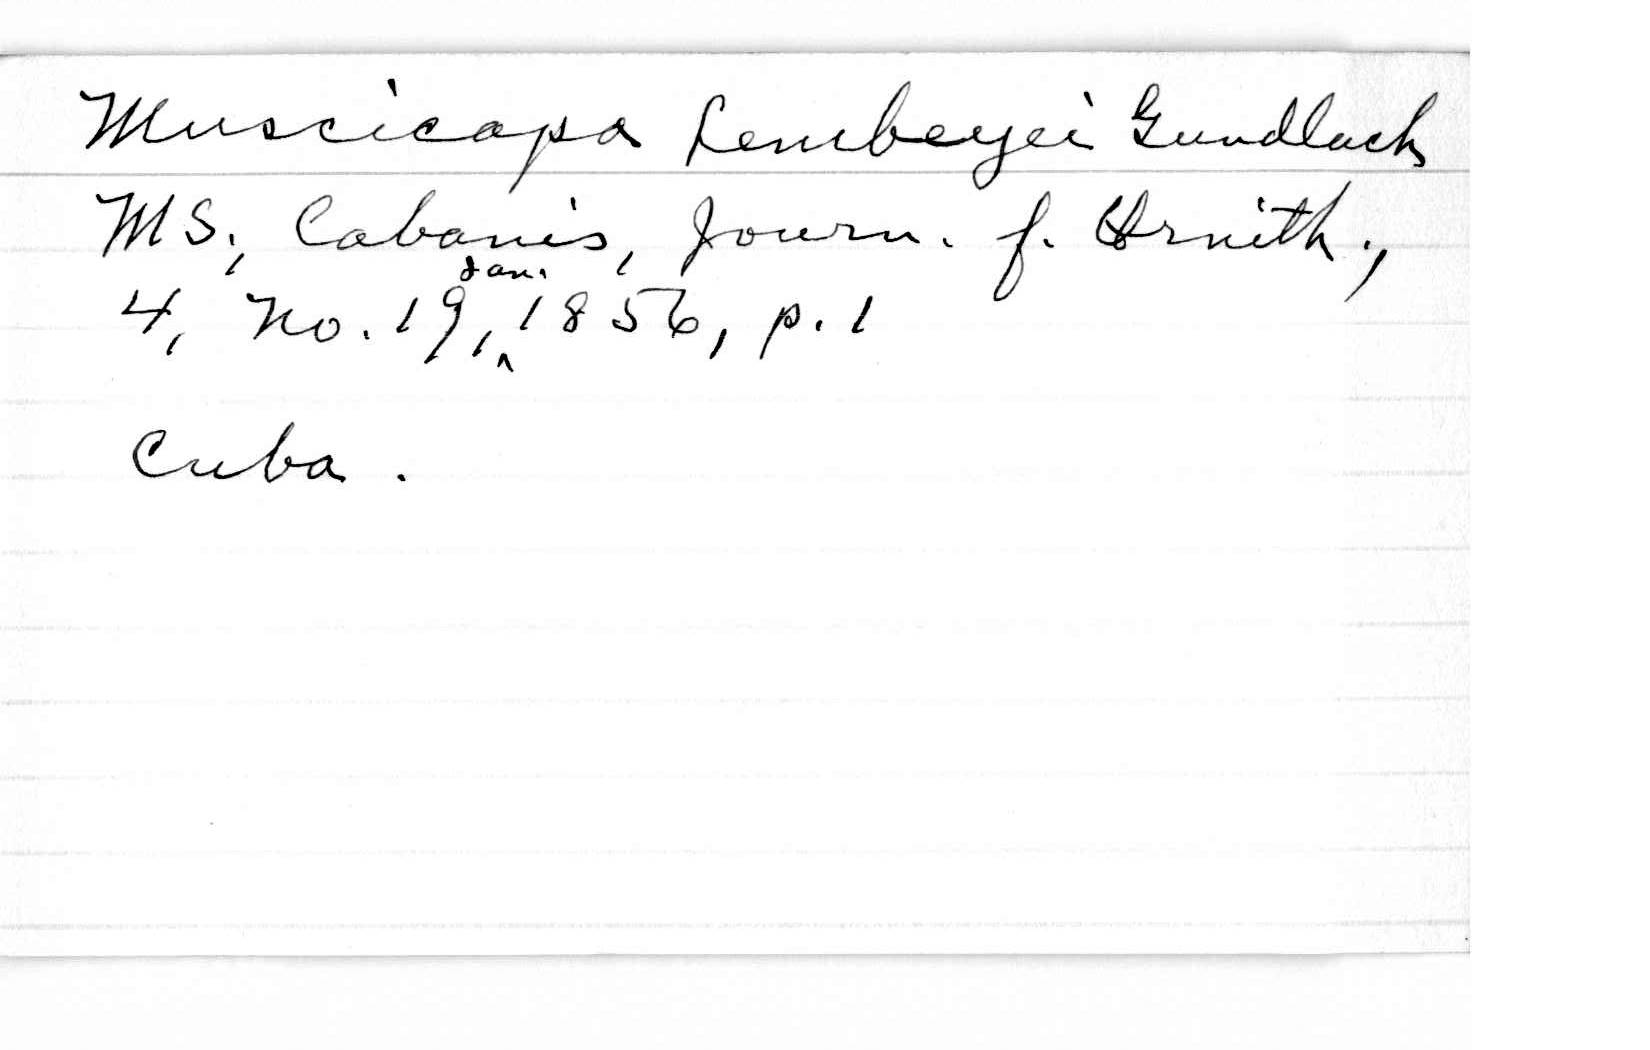 Muscicapa Lembeyei Gundlach
MS, Cabanis, Journ. f. Ornith.,
4, No. 19, Jan. 1856, p. 1
Cuba.